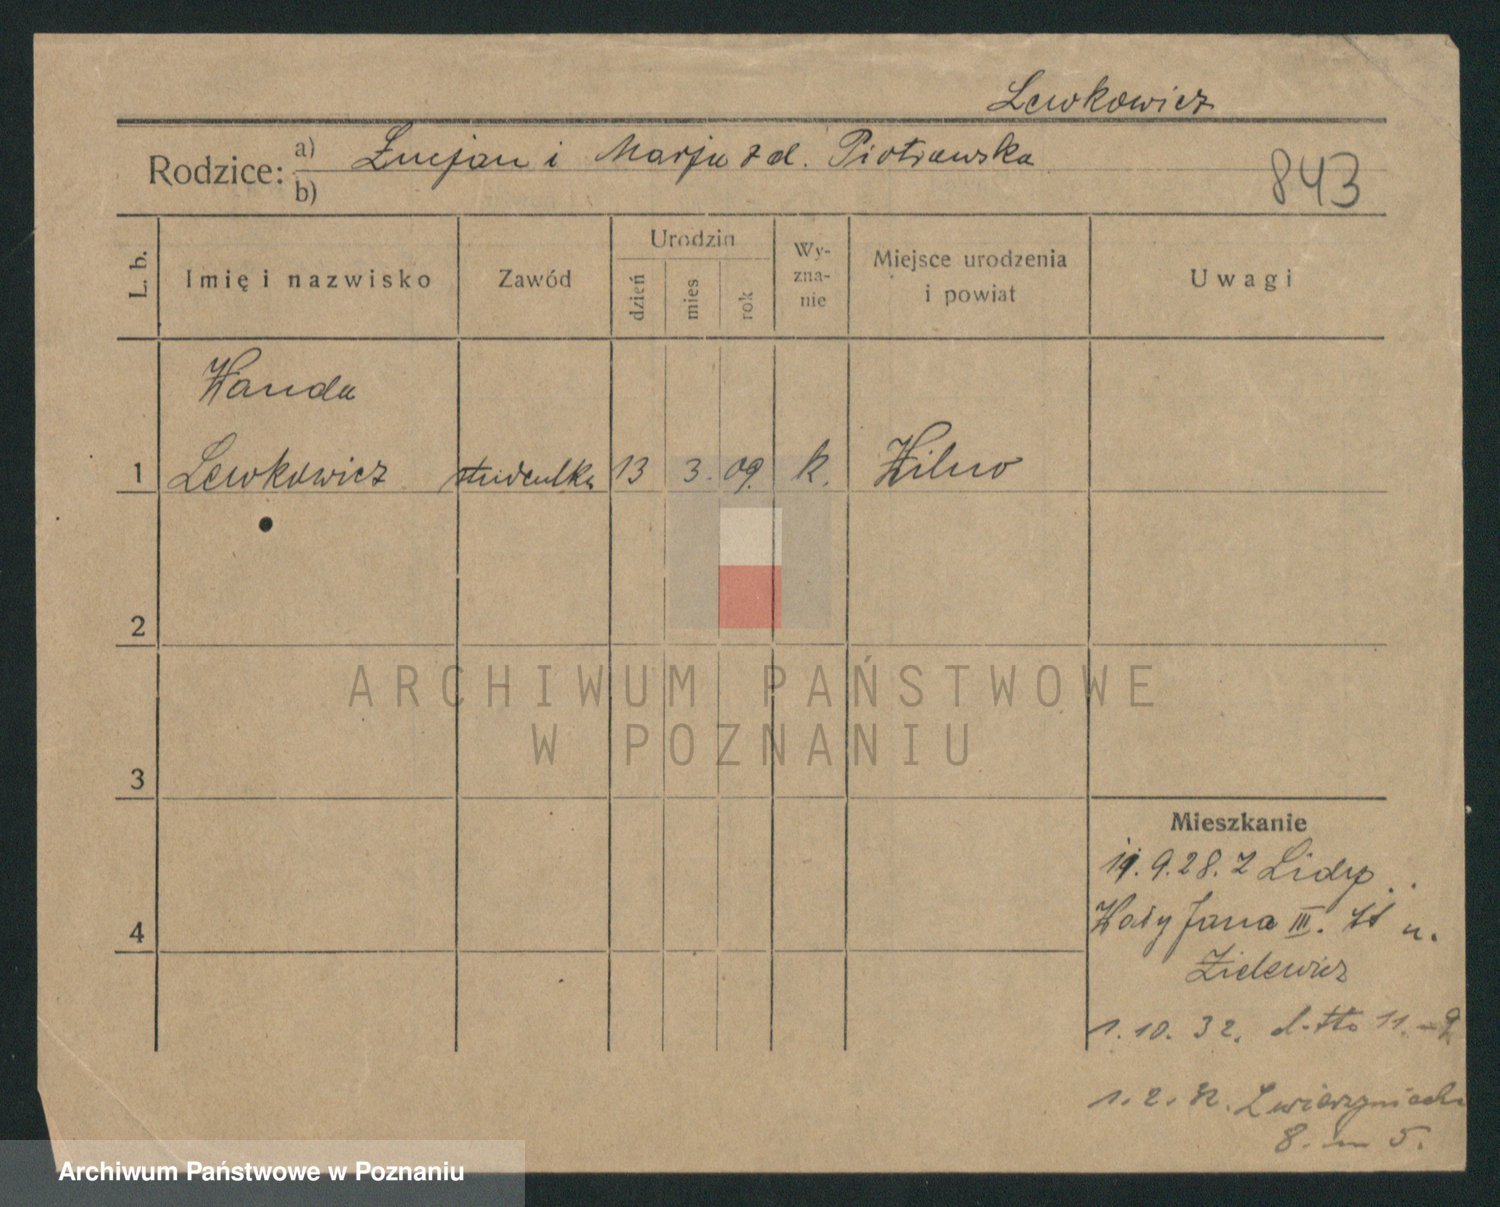 Lewkowicz
Rodzice: a) Lucjan i Marja z d. Piotrowska
b)
843
L. b.
Imię i nazwisko
Zawód
Urodzin
dzień
mies
rok
Wy-
zna-
nie
Miejsce urodzenia
i powiat
Uwagi
Wanda
1 Lewkowicz studentka 13 3. 09. k. Wilno
2
3
4
Mieszkanie
19. 9. 28. z Lidy
Wały Jana III. u.
Zielewicz
1. 10. 32. d-tto 11. - 9
1. 2. 32. Zwierzyniecka
8. m 5.
ARCHIWUM PAŃSTWOWE
W POZNANIU
Archiwum Państwowe w Poznaniu